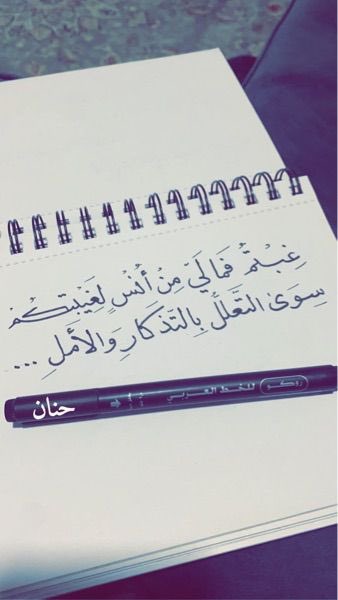 غِبْتُم فَمَا لِيَ مِنْ أُنْسٍ لِغَيْبَتِكُمْ
سِوَى التَّعَلُّلِ بِالتِّذكَارِ وَالأملِ ...
حنان
روكو للخط العربي